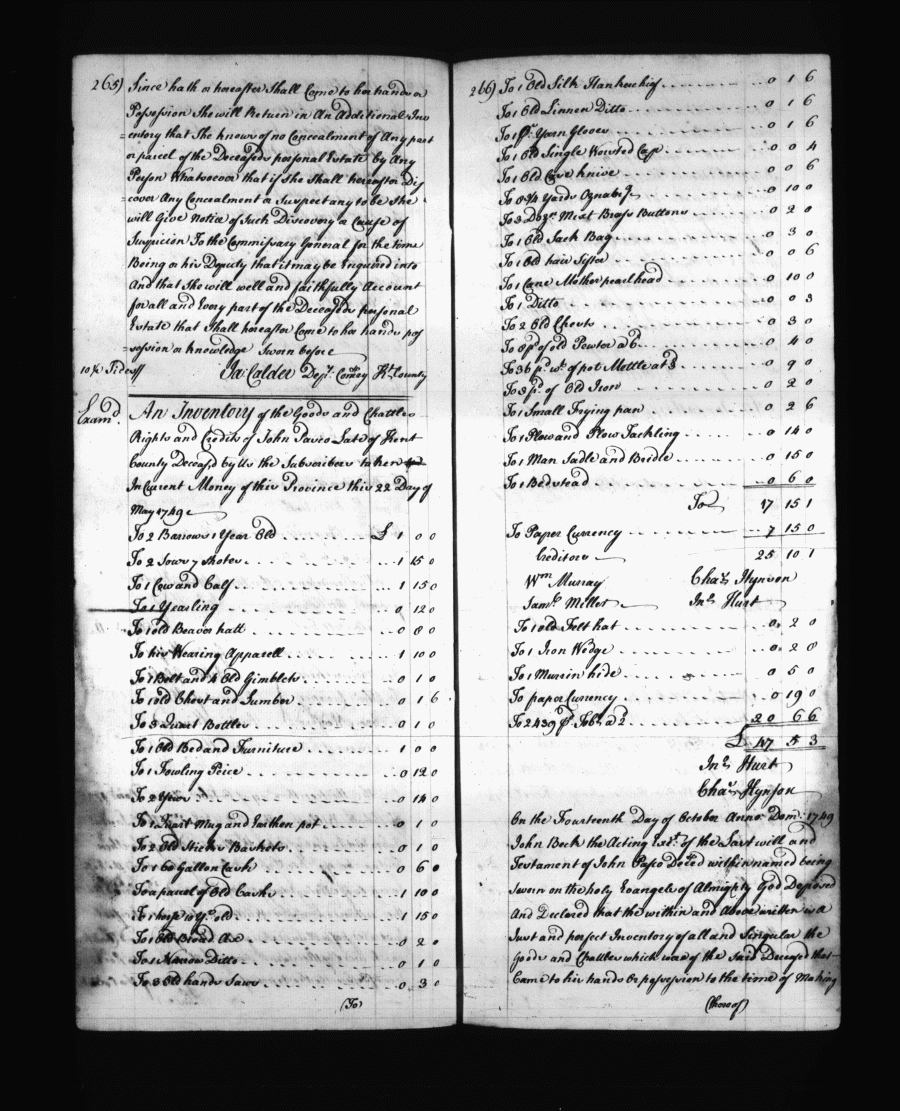 265)
Since hath or hereafter Shall Come to her hands or
Possession She will Return in An Additional Inv
=entory that She knows of no Concealment of Any part
or parcel of the Deceaseds personal Estate by Any
Person Whatsoever that if She Shall hereafter Dis
cover Any Concealment or Suspect any to be She
will Give Notice of Such Discovery or Cause of
Suspicion To the Commissary General for the time
Being or his Deputy that it may be Enquired into
And that She will well and faithfully Account
for all and Every part of the Deceaseds personal
Estate that Shall hereafter Come to her hands pos
=session or knowledge Sworn before
10¼ Sides//
Ja: Calder Depy. Comry Kt. County
Examd.
An Inventory of the Goods and Chattles
Rights and Credits of John Late of Kent
County Deceasd by Us the Subscribers taken
In Current Money of this Province this 22 Day of
May 1749
To 2 Barrows 1 Year Old £ 1 0 0
To 2 Sows 7 Shotes 1 15 0
To 1 Cow and Calf 1 15 0
To 1 Yearling 0 12 0
To 1 old Beaver hatt 0 8 0
To his Wearing Apparell 1 10 0
To 1 Bolt and 4 Old Gimblets 0 1 0
To 1 old Chest and Lumber 0 1 6
To 3 Quart Bottles 0 1 0
To 1 Old Bed and Furniture 1 0 0
To 1 Fowling Peice 0 12 0
To 2 Yews 0 14 0
To 1 Quart Mug and Earthen pot 0 1 0
To 2 Old Sticks Baskets 0 1 0
To 1 60 Gallon Cask 0 6 0
To a parcel of Old Casks 1 10 0
To 1 horse 10 Yrs. old 1 15 0
To 1 Old Broad Ax 0 2 0
To 1 Narrow Ditto 0 1 0
To 3 Old hand Saws 0 3 0
(To)
266)
To 1 Old Silk Hankerchief 0 1 6
To 1 Old Linnen Ditto 0 1 6
To 1 pr. Yarn Gloves 0 1 6
To 1 Old Single Worsted Cap 0 0 4
To 1 Old Case knive 0 0 6
To Yards Oznabrg. 0 10 0
To 3 Dozn. Mixt Brass Buttons 0 2 0
To 1 Old Sack Bag 0 3 0
To 1 Old hair Sifter 0 0 6
To 1 Cane Mother pearl head 0 10 0
To 1 Ditto 0 0 3
To 2 Old Chests 0 3 0
To 8 pd. of old Pewter a 6 0 4 0
To 36 pd. wt. of pot Mettle at 3 0 9 0
To 8 pd. of Old Iron 0 2 0
To 1 Small Frying pan 0 2 6
To 1 Plow and Plow Tackling 0 14 0
To 1 Man Sadle and Bridle 0 15 0
To 1 Bedstead 0 6 0
To 17 15 1
To Paper Currency 7 15 0
Creditors 25 10 1
Wm. Murray Chas. Hynson
Saml. Miller Jno. Hurt
To 1 old Felt hat 0 2 0
To 1 Iron Wedge 0 2 8
To 1 Murrin hide 0 5 0
To paper Currency 0 19 0
To 2439 pd. Tobo. a 2 20 6 6
£ 47 5 3
Jno. Hurt
Chas. Hynson
On the Fourteenth Day of October Anno: Dom: 1749
John Beck the Acting Exr. of the Last will and
Testament of John Decd. within named being
Sworn on the holy Evangels of Almighty God Deposed
And Declared that the within and Above written is a
Just and perfect Inventory of all and Singular the
Goods and Chattles which was of the Said Deceased that
Came to his hands or possession to the time of Making
(thereof)